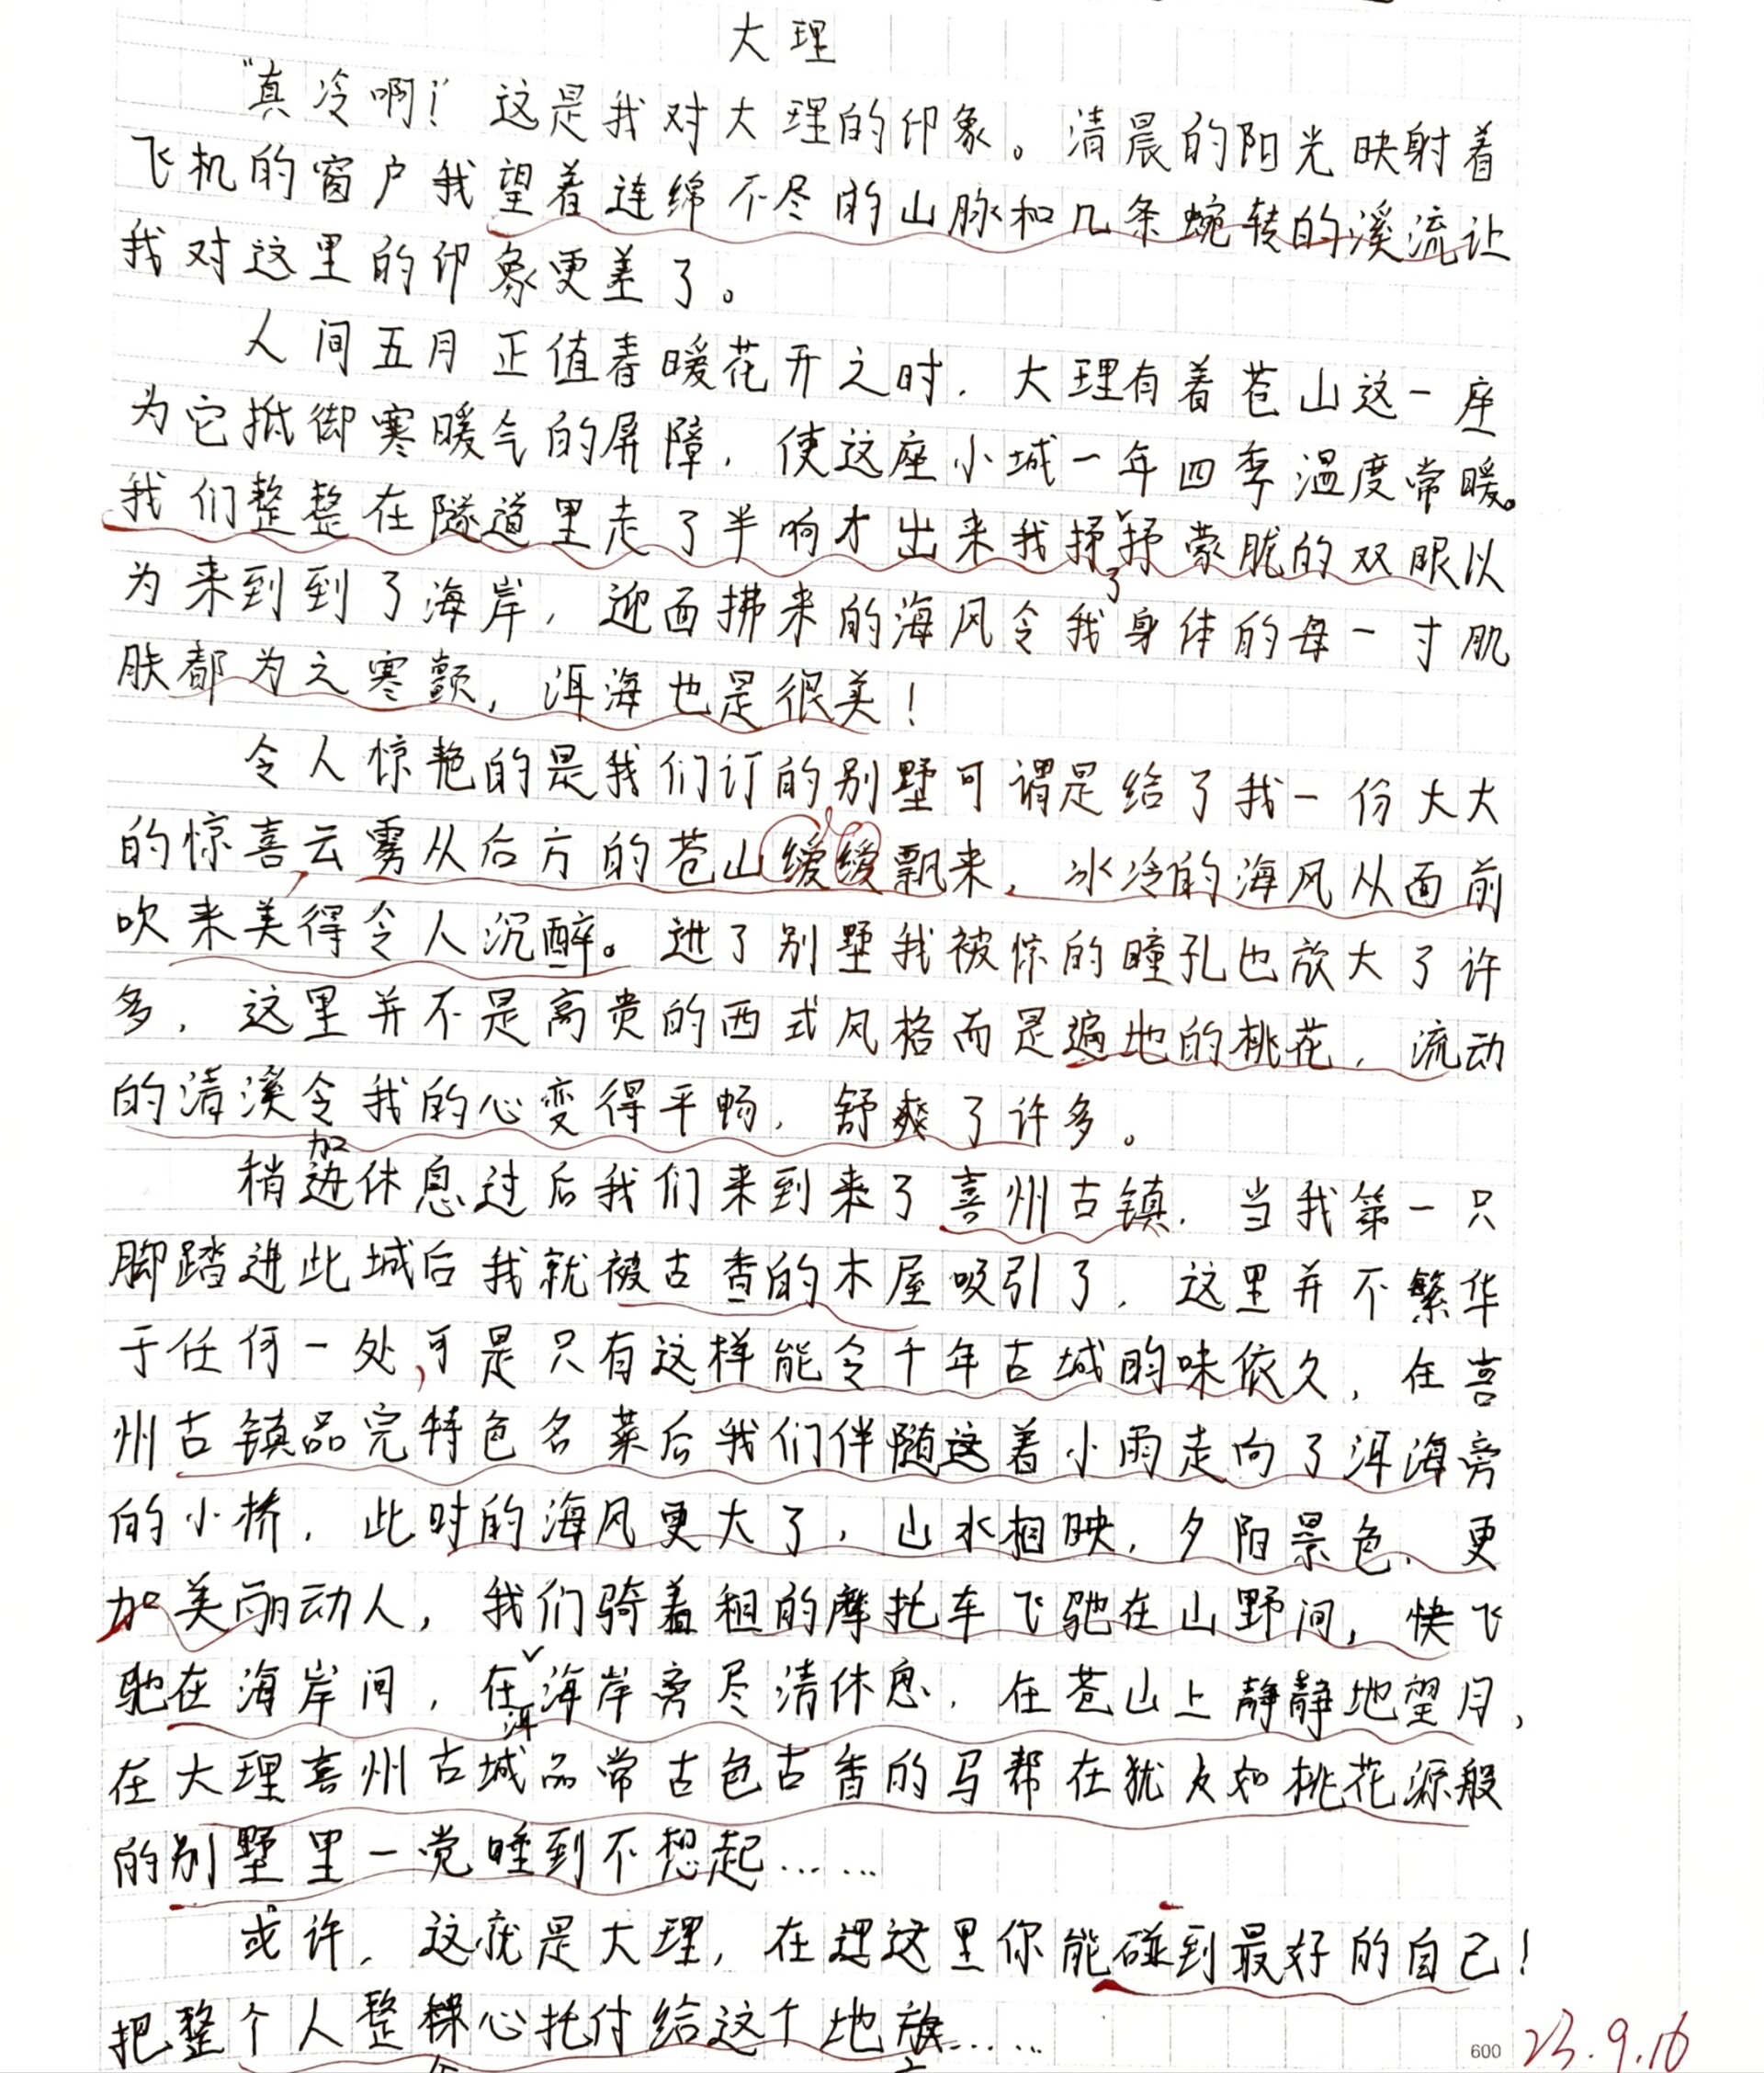 大理
“真冷啊！”这是我对大理的印象。清晨的阳光映射着
飞机的窗户我望着连绵不尽的山脉和几条蜿转的溪流让
我对这里的印象更差了。
人间五月正值春暖花开之时，大理有着苍山这一座
为它抵御寒暖气的屏障，使这座小城一年四季温度常暖。
我们整整在隧道里走了半响才出来我揉了揉蒙胧的双眼以
为来到到了海岸，迎面拂来的海风令我身体的每一寸肌
肤都为之寒颤，洱海也是很美！
令人惊艳的是我们订的别墅可谓是给了我一份大大
的惊喜云雾从后方的苍山缓缓飘来，冰冷的海风从面前
吹来美得令人沉醉。进了别墅我被惊的瞳孔也放大了许
多，这里并不是高贵的西式风格而是遍地的桃花，流动
的清溪令我的心变得平畅，舒爽了许多。
稍加休息过后我们来到来了喜州古镇，当我第一只
脚踏进此城后我就被古香的木屋吸引了，这里并不繁华
于任何一处，可是只有这样能令千年古城的味依久，在喜
州古镇品完特色名菜后我们伴随着小雨走向了洱海旁
的小桥，此时的海风更大了，山水相映，夕阳景色，更
加美丽动人，我们骑着租的摩托车飞驰在山野间，快飞
驰在海岸间，在洱海岸旁尽清休息，在苍山上静静地望月，
在大理喜州古城品常古色古香的马帮在犹如桃花源般
的别墅里一觉睡到不想起……
或许，这就是大理，在这里你能碰到最好的自己！
把整个人整棵心托付给这个地……
600 23.9.16